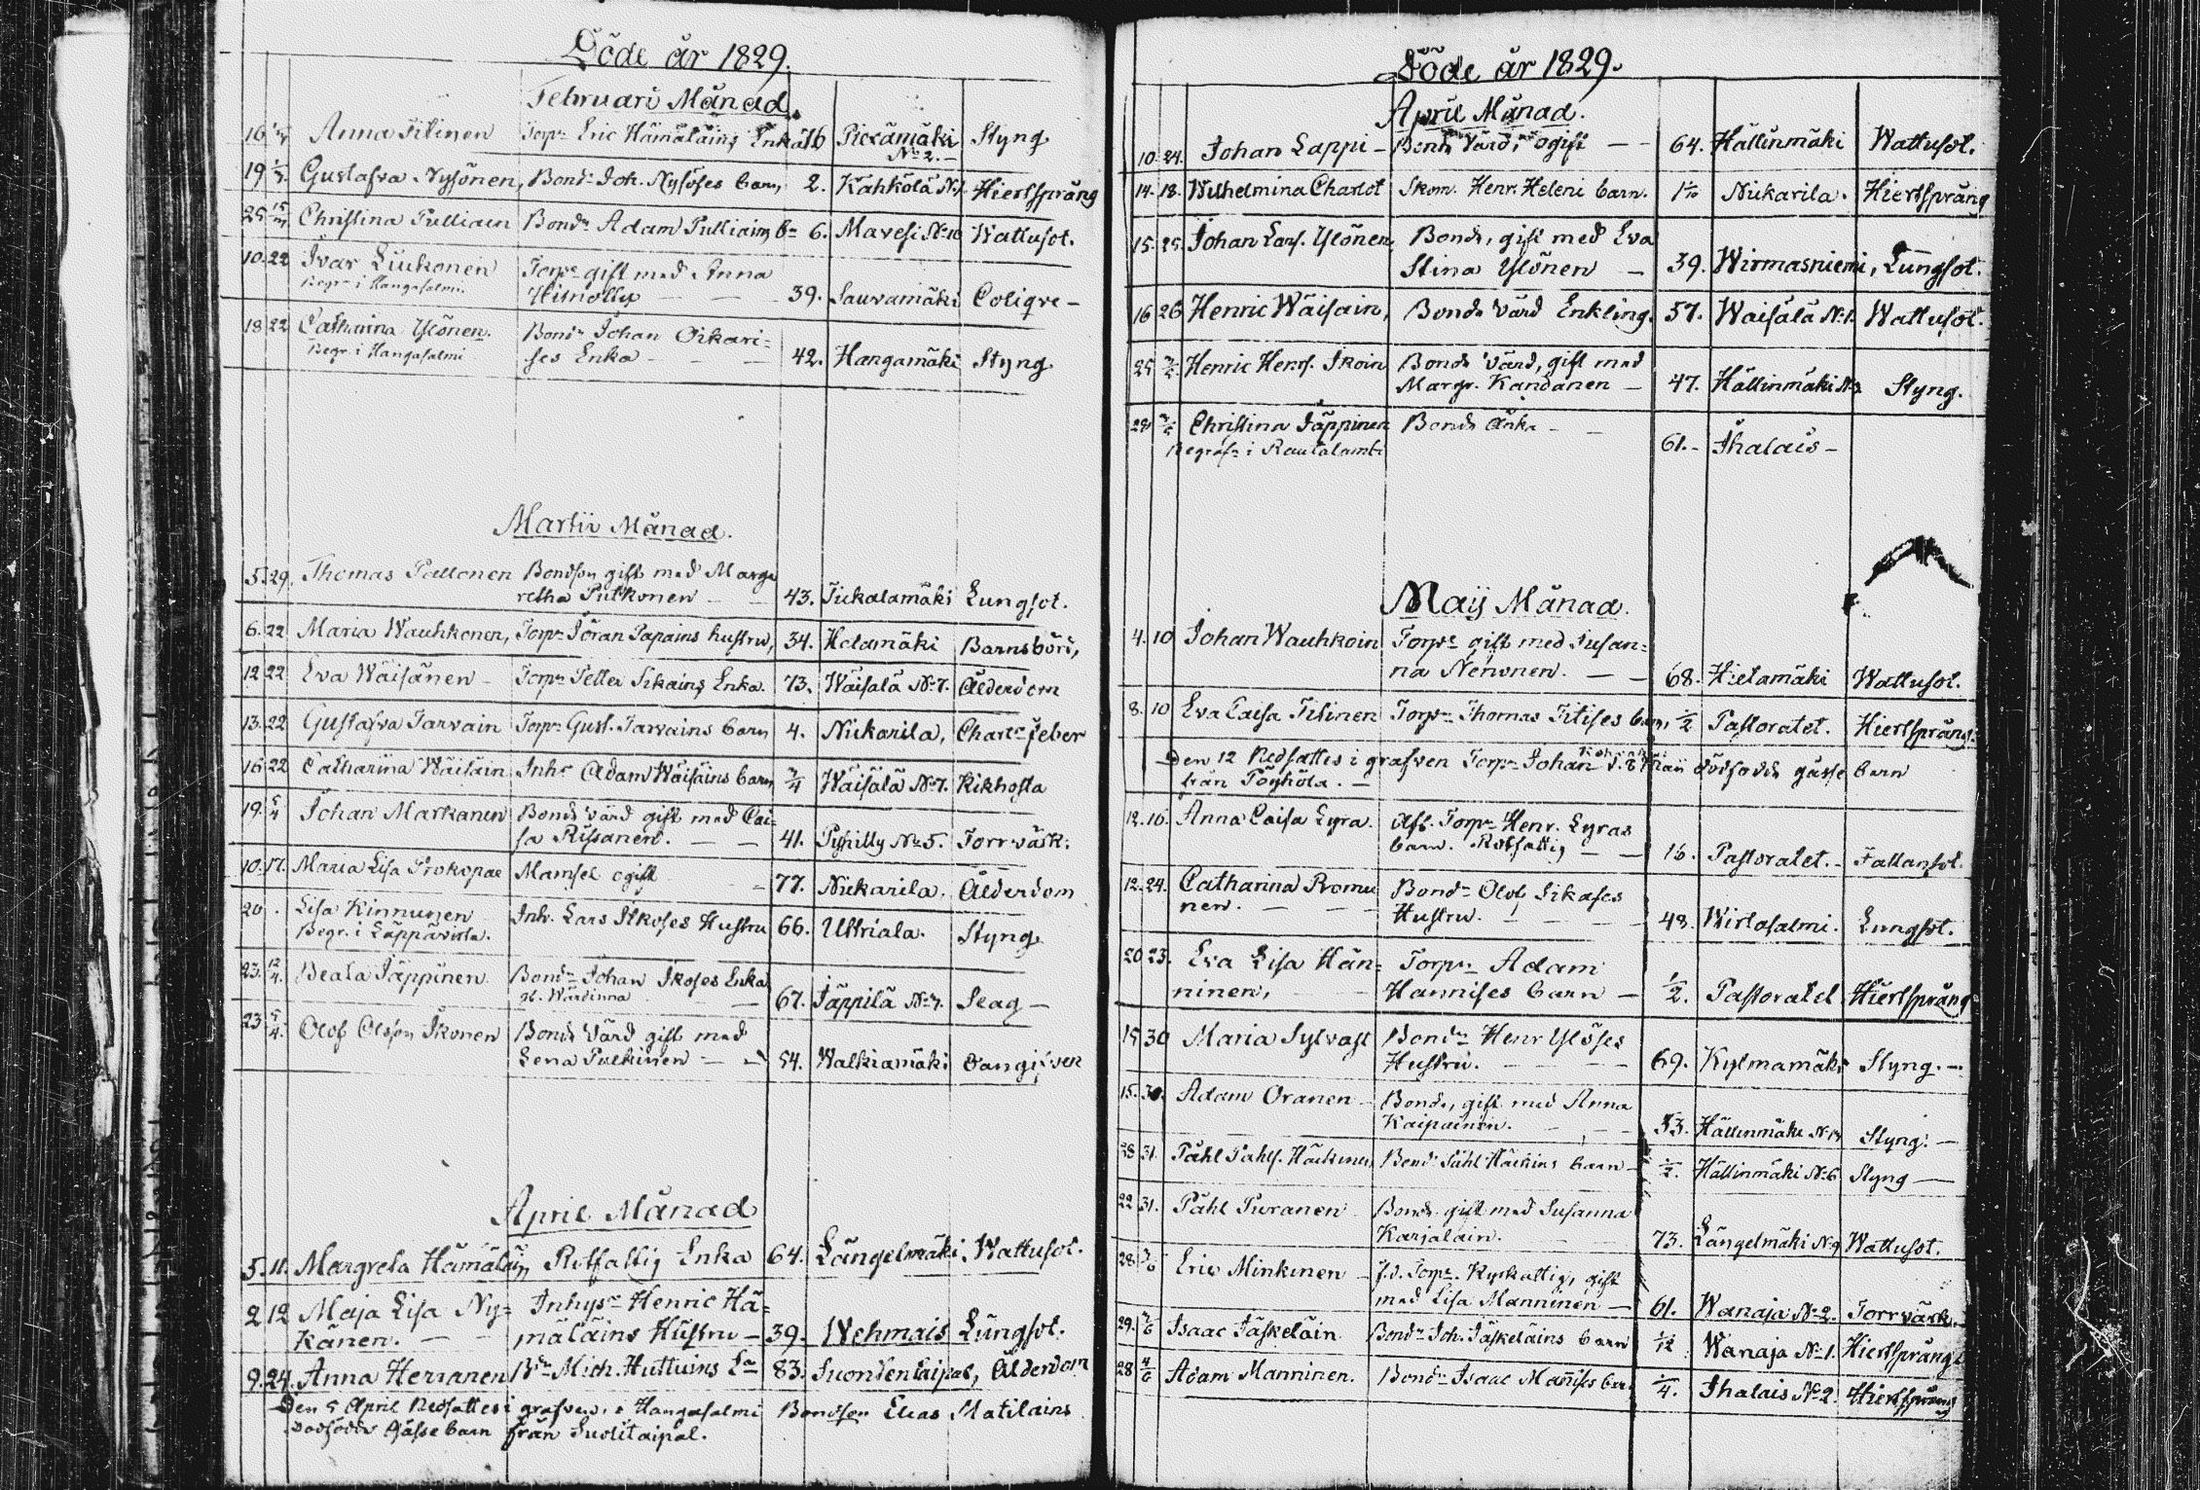 Döde år 1829.
Februari Månad.
16 1/3 Anna Titinen Torp: Eric Hämäläins Enka 76 Piexämäki Styng
No 2. –
19 1/3. Gustafva Nysönen, Bond: Joh. Nysöses barn, 2. Kahkölä No 1. Hiertsprång
25 15/3 Christina Pulliain Bond: Adam Pulliains bn 6. Mavesi No 10 Wattusot.
10. 22 Ivar Liukonen Torp: gift med Anna
Begr: i Hangasalmi. — — 39. Sauvamäki Coliqve –
18 22 Catharina Ylönen. Bond: Johan Oikari=
Begr. i Hangasalmi ses Enka — — 42. Hangamäki Styng
Martii Månad.
5. 29. Thomas Pallonen Bondson gift med Marga
retha Pulkonen — 43. Tiekalamäki Lungsot.
6. 22 Maria Wauhkonen, Torp: Jöran Papains hustru, 34. Hetamäki Barnsbörd,
12 22 Eva Wäisänen – Torp: Petter Sikains Enka. 73. Wäisälä No 7. Ålderdom
13. 22 Gustafva Tarvain Torp: Gust. Tarvains barn 4. Nickarila, feber
16 22 Catharina Wäisäin Inh: Adam Wäisäins barn 3/4 Wäisälä No 7. Kikhosta
19. 5/4 Johan Markanen Bonde värd gift med Cai=
sa Rissanen. — — 41. No 5. Torrvärk.
10. 17. Maria Lisa Prokopae Mamsel ogift – 77. Nickarila. Ålderdom
20 . Lisa Kinnunen Inh. Lars Itkoses Hustru 66. Uttriala. Styng
Begr. i Läppävirta.
23. 12/4. Beata Jäppinen Bond: Johan Ikoses Enka
gl. Wärdinna — 67. Jäppilä No 7. Seag –
23 5/4. Olof Olofson Ikonen Bonde Värd gift med
Lena Pulkinen — 54. Walkiamäki
April Månad
5. 11. Margreta Hämäläin Rotfattig Enka 64. Längelmäki Wattusot.
2 12 Maja Lisa Ny= Inhys: Henric Hä=
känen. — — mäläins Hustru – 39. Wehmais Lungsot.
9. 24 Anna Herranen Bde Mich. Huttuins Ea 83. Suondentaipal, Ålderdom
Den 5 April Nedsattes i grafven i Hangasalmi Bondson Elias Matilains
dödfödde Gåsse barn från Suolitaipal.
Döde år 1829.
April Månad.
10. 24. Johan Lappi – Bonde Värd, ogift — – 64. Hällinmäki Wattusot.
14. 18. Wilhelmina Charlot Skom. Henr. Heleni barn. Nickarila. Hiertsprång
15. 25. Johan Lars. Ylönen, Bonde, gift med Eva
Stina Ylönen – 39. Wirmasniemi, Lungsot.
16 26 Henric Wäisäin, Bonde Värd Enkling. 57. Waisälä No 1. Wattusot.
25 Henric Henr. Ikoin Bonde Värd, gift med
Margr. Kandanen – 47. Hällinmäki Styng.
Christina Jäppinen Bonde änka – –
Begrafn i Rautalambi 61. – Ihalais –
Maij Månad.
4. 10 Johan Wauhkoin Torp: gift med Susan=
na Nenonen. — — 68. Hietamäki Wattusot.
8. 10 Eva Caisa Titinen Torp: Thomas Titises barn, 1/2 Pastoratet. Hiertsprång.
Den 12 Nedsattes i grafven Torp: Johan d. 8 Maii dödfödde gåsse barn
från Pöyhölä. –
12. 16. Anna Caisa Lyra. Afl. Torp: Henr. Lyras
barn. Rotfattig — — 16. Pastoratet. – Fallansot.
12. 24. Catharina Promu Bond: Olof Sikases
nen. — — Hustru. — 48. Wirtasalmi. Lungsot.
20 23. Eva Lisa Hän= Torp: Adam
ninen, Hannises barn – 1/2. Pastoratet Hiertsprång
15 30 Maria Sylvast Bond: Henr Ylöses
Hustru. — 69. Kylmamäki Styng. –
15. 30. Adam Oranen – Bonde, gift med Anna
Kaipainen. — 53. Hällinmäki Styng. –
28 31. Påhl Påhls. Häckinen, Bond: Påhl Häckins barn – 1/2. Hällinmäki No 6 Styng —
22 31. Påhl Turanen Bonde gift med Susanna
Karjalain. 73. Längelmäki No 9 Wattusot.
28 Eric Minkinen – Torp: gift
med Lisa Manninen – 61. Wanaja No 2. Torrvärk.
29. Isaac Jäskeläin Bond: Joh. Jäskeläins barn 1/12 Wanaja No 1. Hiertsprång
28 4/6 Adam Manninen. Bond: Isaac Mañises barn 1/4. Ihalais No 2. Hiertsprång